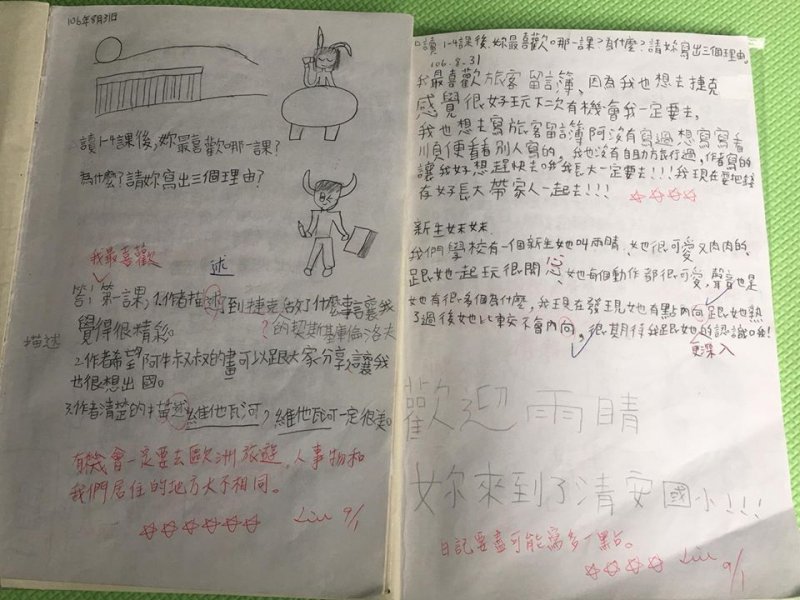 106年8月31日
讀1-4課後,妳最喜歡哪一課?
為什麼?請妳寫出三個理由?
我最喜歡
述
答:第一課,1.作者描述到捷克做了什麼事讓我
覺得很精彩。
?的契斯基庫倫洛夫
描述
2.作者希望阿牛叔叔的畫可以跟大家分享,讓我
也很想出國。
3.作者清楚的描述維他瓦河,維他瓦河一定很美。
有機會一定要去歐洲旅遊,人事物和
我們居住的地方大不相同。
☆☆☆☆☆☆ Liu 9/1
讀1-4課後,妳最喜歡哪一課?為什麼?請妳寫出三個理由。
106.8.31
我最喜歡旅客留言簿、因為我也想去捷克
感覺很好玩下次有機會我一定要去,
我也想去寫旅客留言簿阿沒有寫過想寫寫看
順便看看別人寫的,我也沒有自助旅行過,作者寫的
讓我好想趕快去哦我長大一定要去!!!我現在要把錢
存好長大帶家人一起去!!!
☆☆☆☆
新生妹妹
我們學校有一個新生她叫雨晴、她很可愛又肉肉的、
跟她一起玩很開心、她每個動作都很可愛,聲音也是
她有很多個為什麼,我現在發現她有點內向跟她熟
了過後她比較不會內向,很期待我跟她的認識哦!
更深入
歡迎雨晴
妳來到了清安國小!!!
日記要盡可能寫多一點點。
☆☆☆☆ Liu 9/1